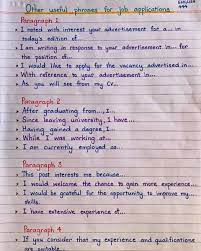 ENGLISH
Other useful phrases for job applications
Paragraph 1
• I noted with interest your advertisement for a... in
today's edition of...
• I am writing in response to your advertisement in... for
the position of...
• I would like to apply for the vacancy advertised in...
• With reference to your advertisement in...
• As you will see from my CV
Paragraph 2
• After graduating from...I...
• Since leaving university, I have...
• Having gained a degree, I...
• While I was working at...
• I am currently employed as...
Paragraph 3
• This post interests me because...
• I would welcome the chance to gain more experience...
• I would be grateful for the opportunity to improve my
skills.
• I have extensive experience of...
Paragraph 4
• If you consider that my experience and qualifications
are suitable...